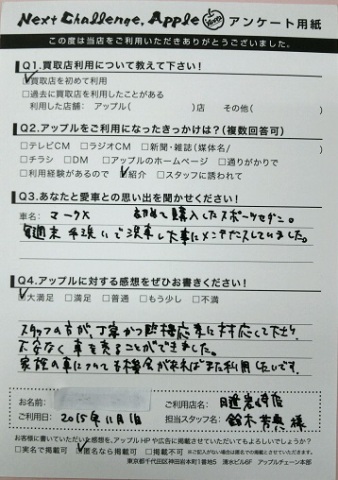 Next Challenge, Apple アンケート用紙
この度は当店をご利用いただきありがとうございました。
Q1.買取店利用について教えて下さい!
☑買取店を初めて利用
□過去に買取店を利用したことがある
利用した店舗: アップル( )店 その他( )
Q2.アップルをご利用になったきっかけは?(複数回答可)
□テレビCM □ラジオCM □新聞・雑誌(媒体名/ )
□チラシ □DM □アップルのホームページ □通りがかりで
□利用経験があるので ☑紹介 □スタッフに誘われて
Q3.あなたと愛車との思い出を聞かせください!
車名: マークX 初めて購入したスポーツセダン。
毎週末 手洗いで洗車し大事にメンテナンスしていました。
Q4.アップルに対する感想をぜひお書きください!
☑大満足 □満足 □普通 □もう少し □不満
スタッフの方が、丁寧かつ臨機応変に対応して下さり
不安なく車を売ることができました。
家族の車についても機会があればまた利用したいです。
お名前:
ご利用店名:
ご利用日: 2015年11月1日
担当スタッフ名: 鈴木 様
お客様に書いていただいた感想を、アップルHPや広告に掲載させていただいてもよろしいでしょうか?
□実名で掲載可 ☑匿名なら掲載可 □不可
東京都千代田区神田岩本町1番地5 清水ビル6F アップルチェーン本部